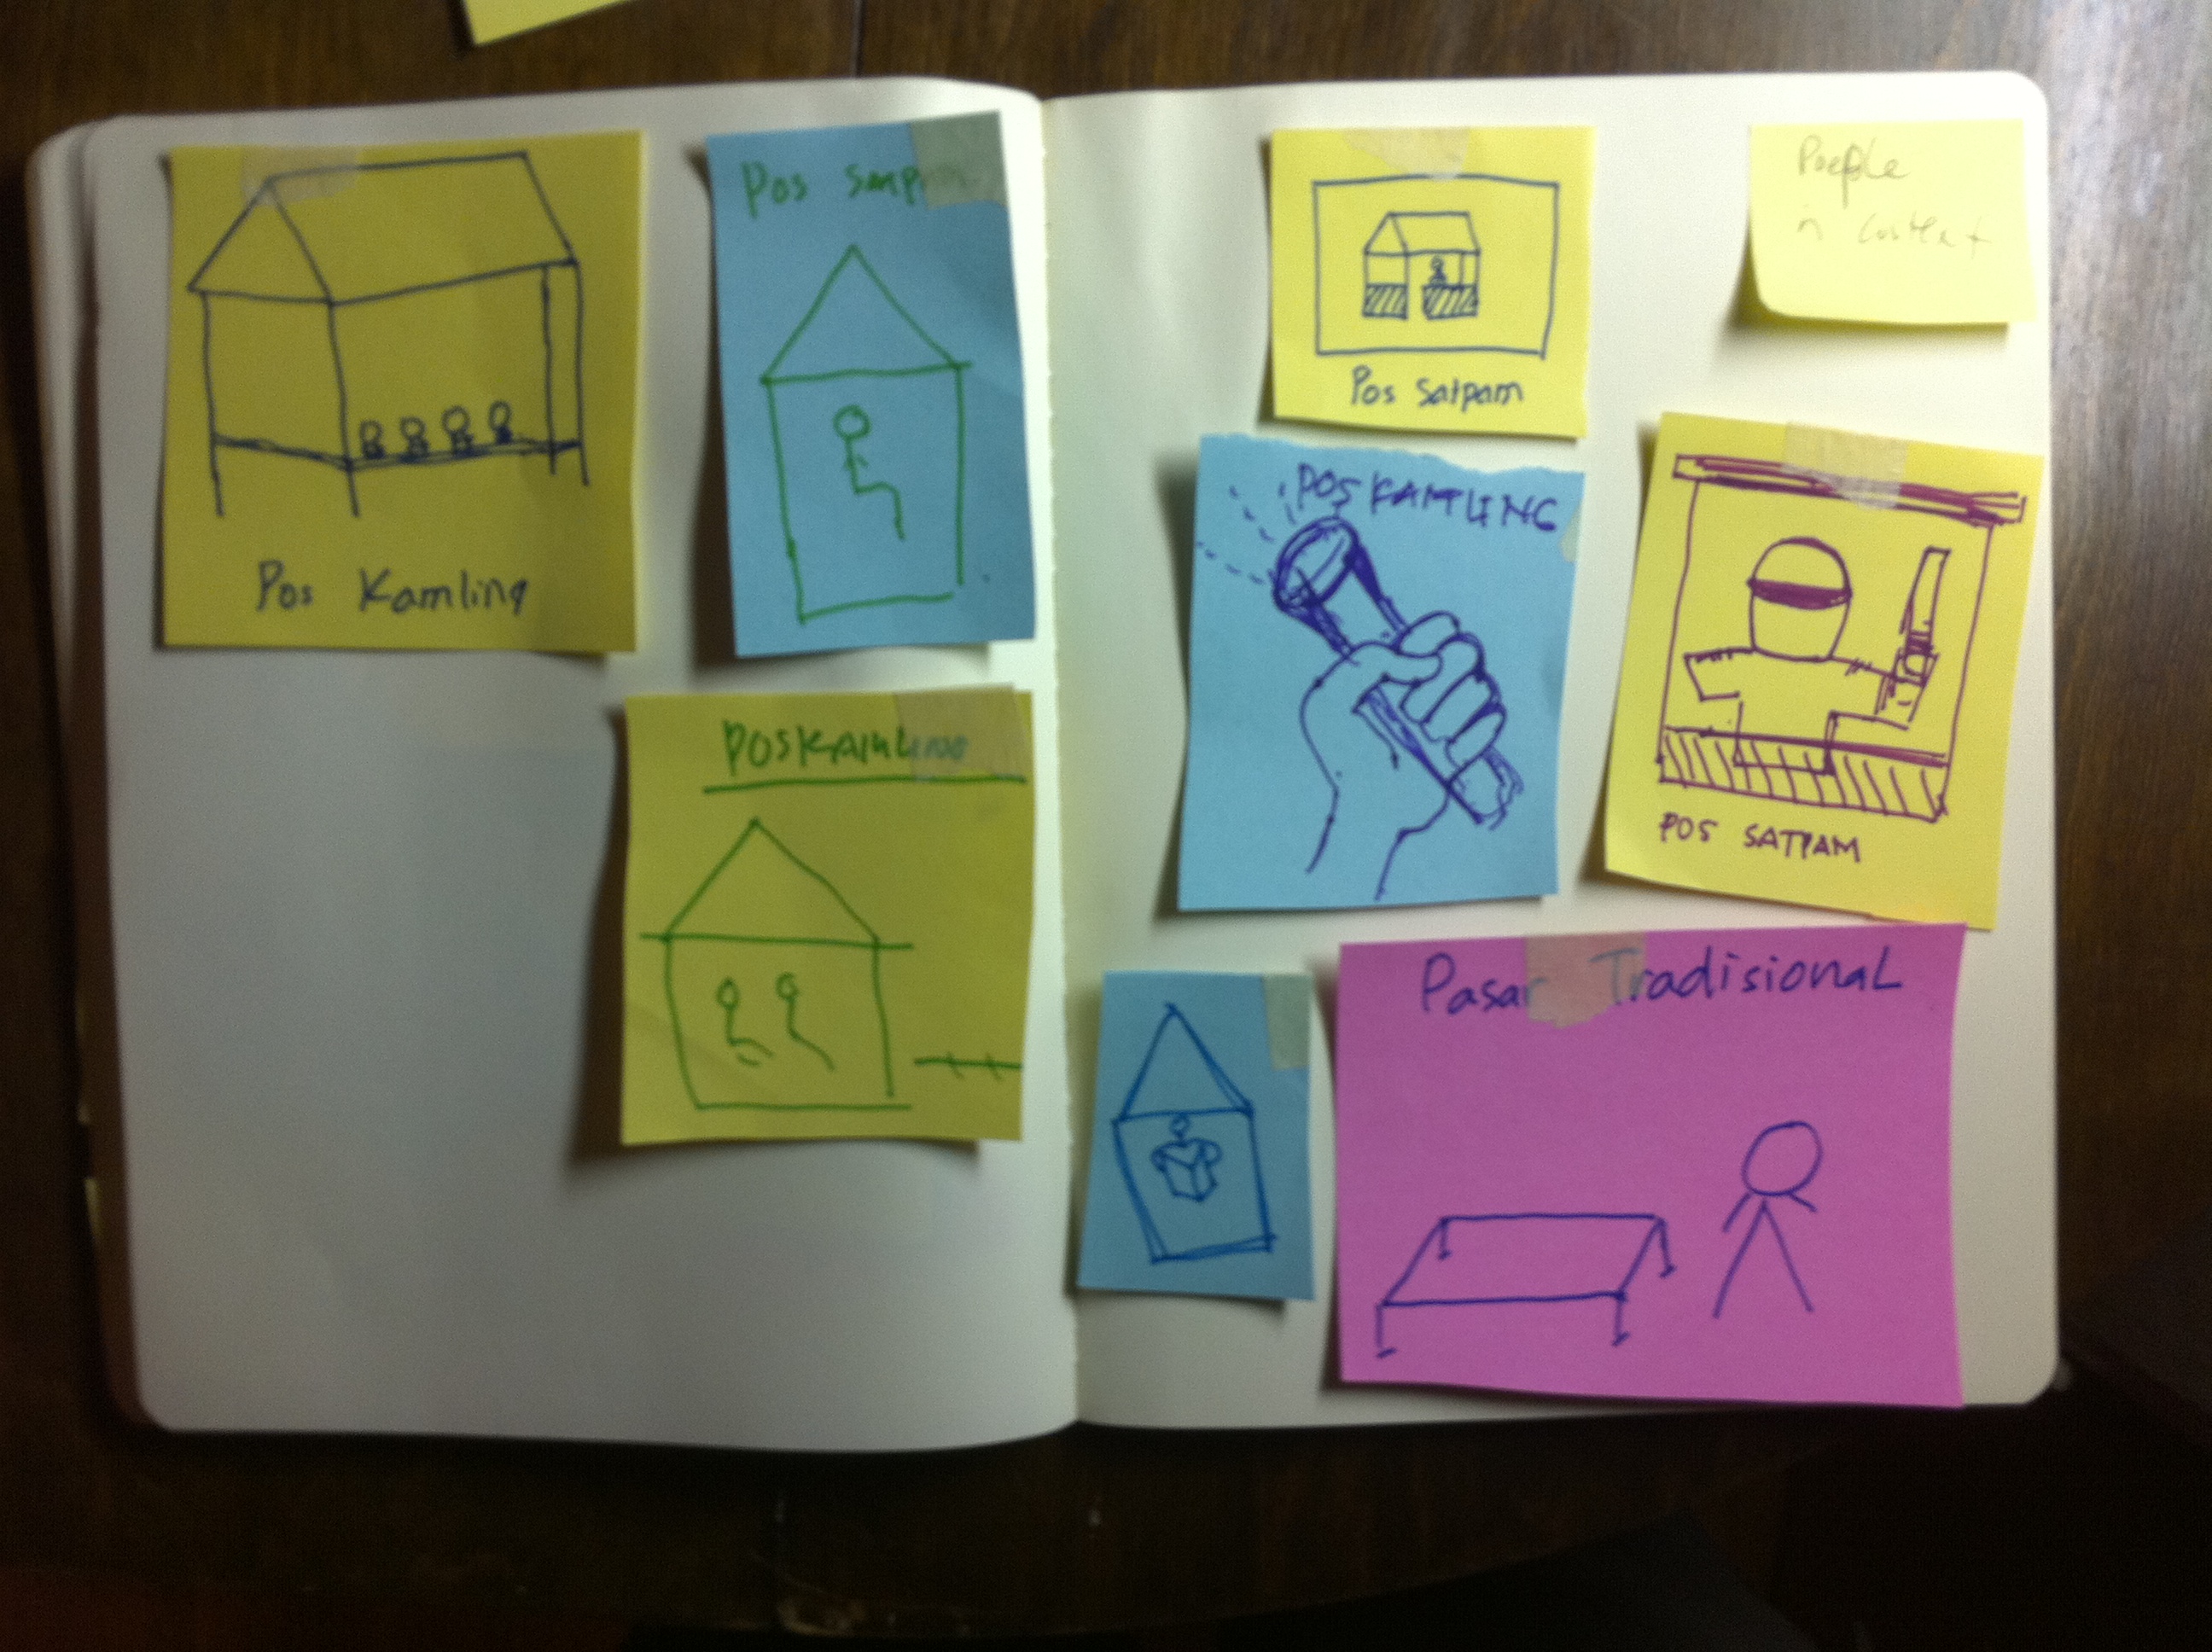 Pos Kamling
Pos
POSKAMLING
Pos Satpam
People
in context
POS KAMLING
POS SATPAM
Pasar Tradisional